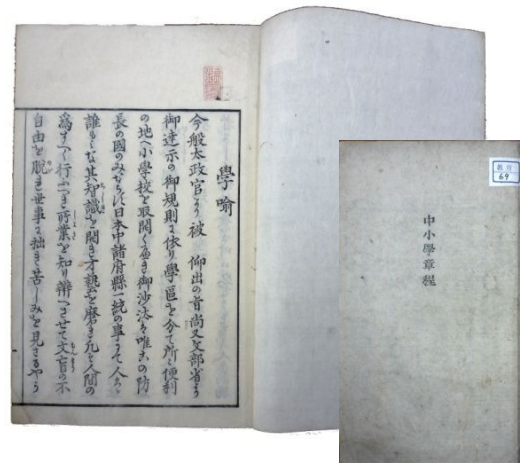 學喻
今般太政官より被 仰出の旨尚又文部省より
御達示の御規則に依り學區を分て所々便利
の地へ小學校を取開くべき御沙汰は唯此の防
長の國のみならず日本中諸府縣一統の事にて人々
誰もみな其智識を開き才藝を磨き凡そ人間の
為すべく行ふべき所業を知り辨へさせて文盲の不
自由を脱き世事に拙き苦しみを見ざるやう
中小學章程
69